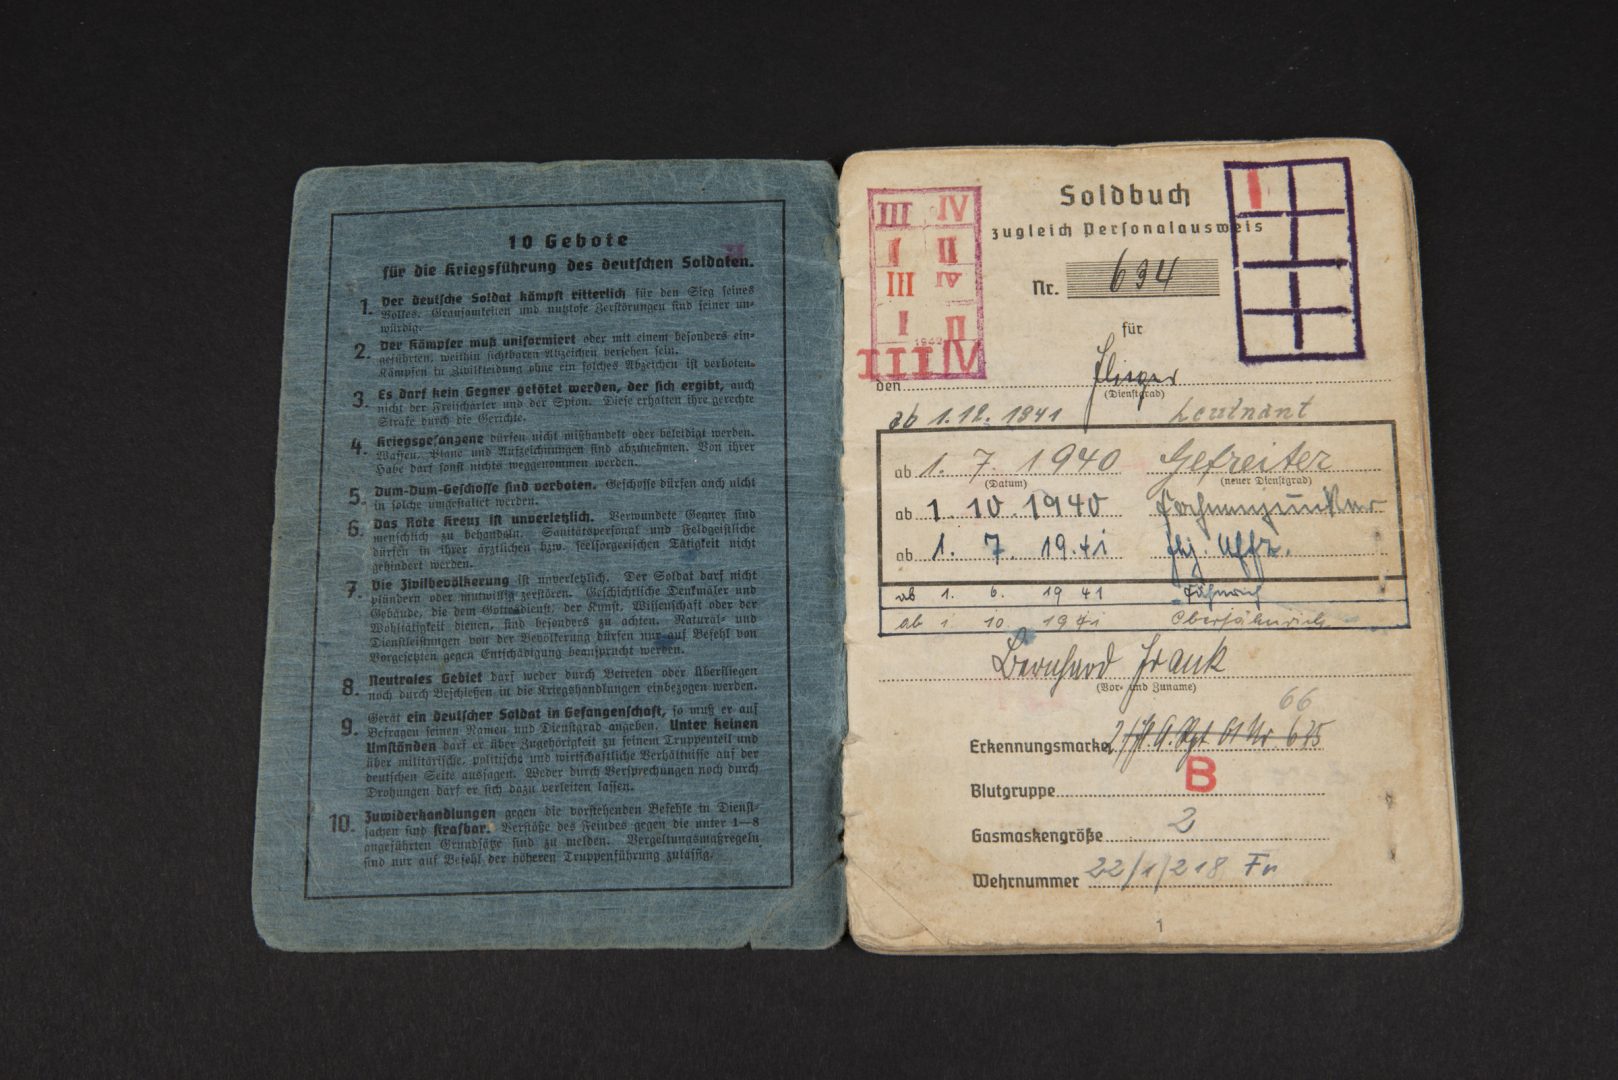 10 Gebote
für die Kriegsführung des deutschen Soldaten.
1. Der deutsche Soldat kämpft ritterlich für den Sieg seines
Volkes. Grausamkeiten und nutzlose Zerstörungen sind seiner un-
würdig.
2. Der Kämpfer muß uniformiert oder mit einem besonders ein-
geführten, weithin sichtbaren Abzeichen versehen sein.
Kämpfen in Zivilkleidung ohne ein solches Abzeichen ist verboten.
3. Es darf kein Gegner getötet werden, der sich ergibt, auch
nicht der Freischärler und der Spion. Diese erhalten ihre gerechte
Strafe durch die Gerichte.
4. Kriegsgefangene dürfen nicht mißhandelt oder beleidigt werden.
Waffen, Pläne und Aufzeichnungen sind abzunehmen. Von ihrer
Habe darf sonst nichts weggenommen werden.
5. Dum-Dum-Geschosse sind verboten. Geschosse dürfen auch nicht
in solche umgestaltet werden.
6. Das Rote Kreuz ist unverletzlich. Verwundete Gegner sind
menschlich zu behandeln. Sanitätspersonal und Feldgeistliche
dürfen in ihrer ärztlichen bzw. seelsorgerischen Tätigkeit nicht
gehindert werden.
7. Die Zivilbevölkerung ist unverletzlich. Der Soldat darf nicht
plündern oder mutwillig zerstören. Geschichtliche Denkmäler und
Gebäude, die dem Gottesdienst, der Kunst, Wissenschaft oder der
Wohltätigkeit dienen, sind besonders zu achten. Natural- und
Dienstleistungen von der Bevölkerung dürfen nur auf Befehl von
Vorgesetzten gegen Entschädigung beansprucht werden.
8. Neutrales Gebiet darf weder durch Betreten oder Überfliegen
noch durch Beschießen in die Kriegshandlungen einbezogen werden.
9. Gerät ein deutscher Soldat in Gefangenschaft, so muß er auf
Befragen seinen Namen und Dienstgrad angeben. Unter keinen
Umständen darf er über Zugehörigkeit zu seinem Truppenteil und
über militärische, politische und wirtschaftliche Verhältnisse auf der
deutschen Seite aussagen. Weder durch Versprechungen noch durch
Drohungen darf er sich dazu verleiten lassen.
10. Zuwiderhandlungen gegen die vorstehenden Befehle in Dienst-
sachen sind strafbar. Verstöße des Feindes gegen die unter 1—8
angeführten Grundsätze sind zu melden. Vergeltungsmaßregeln
sind nur auf Befehl der höheren Truppenführung zulässig.
III IV
I II
III IV
I II
1942
VIII
I
Soldbuch
zugleich Personalausweis
Nr. 634
für
den Flieger
(Dienstgrad)
ab 1.12.1941 Leutnant
ab 1. 7. 1940 Gefreiter
(Datum) (neuer Dienstgrad)
ab 1. 10. 1940 Fahnenjunker
ab 1. 7. 19.41 Fhj. Uffz.
ab 1. 6. 1941 Fähnrich
ab 1. 10. 1941 Oberfähnrich
Bernhard Frank
(Vor- und Zuname)
66
Erkennungsmarke 2/Fl. A. Rgt 61 Nr 625
Blutgruppe B
Gasmaskengröße 2
Wehrnummer 22/1/218 Fr
1